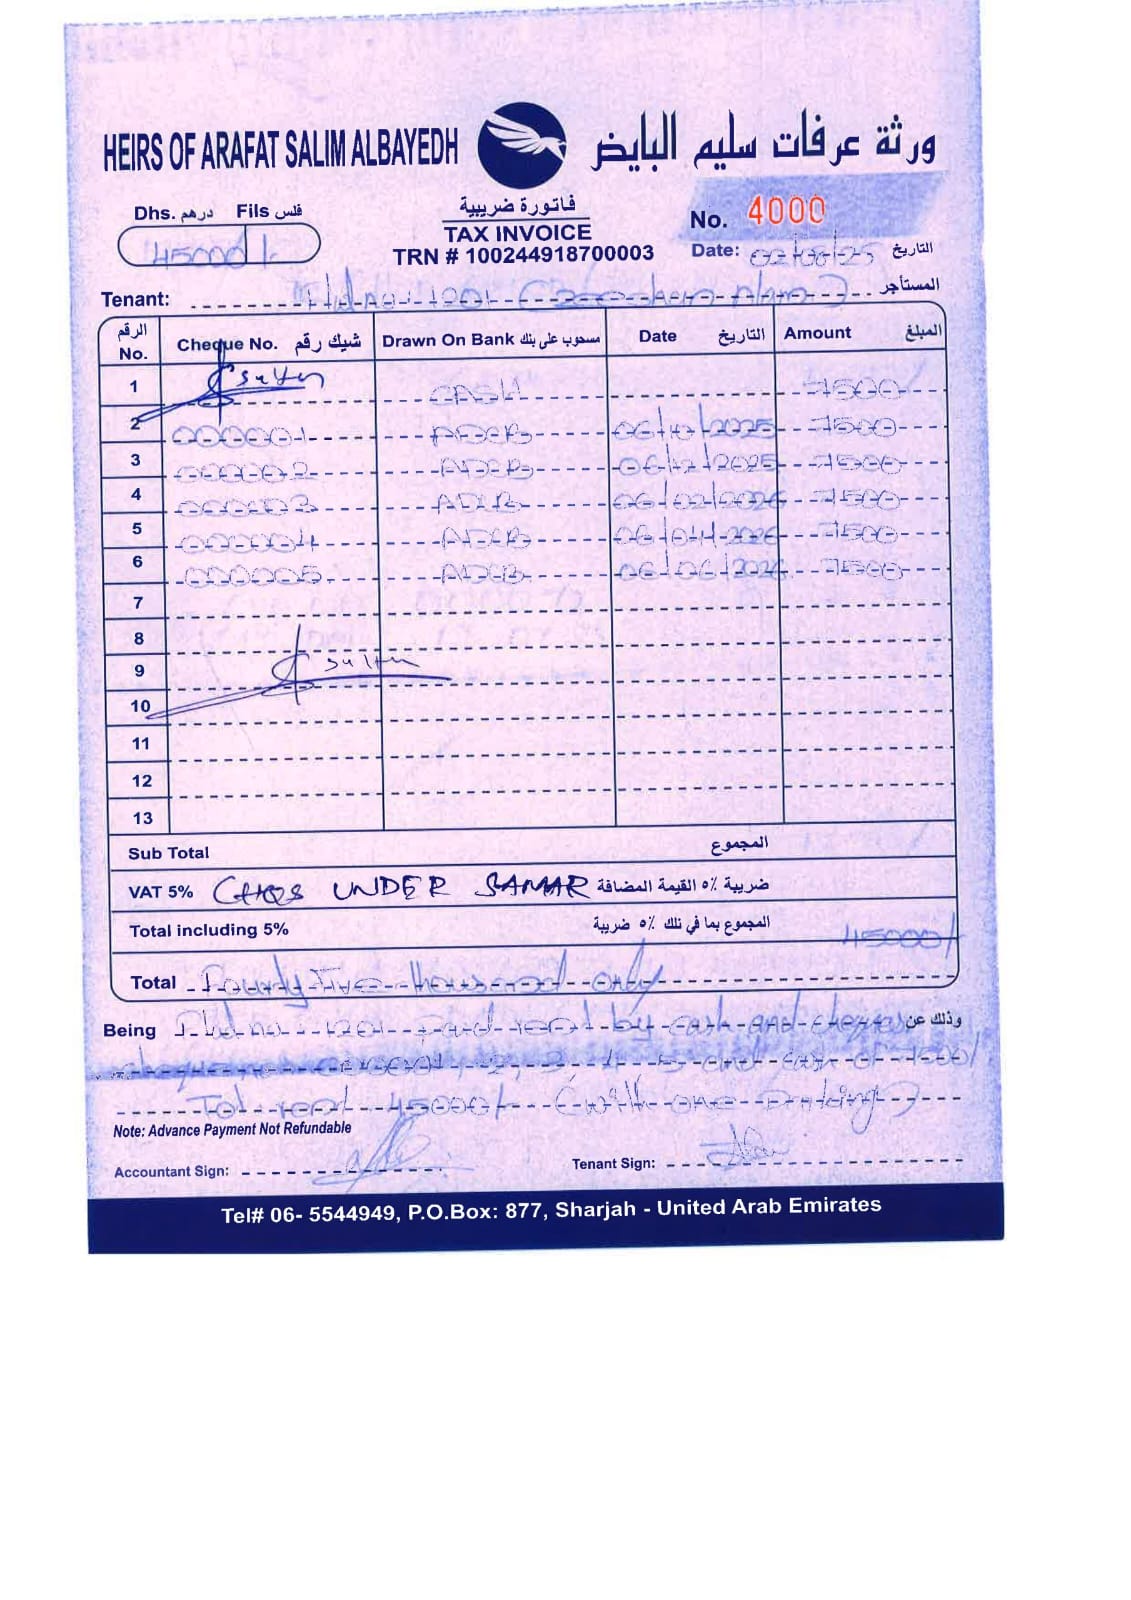 HEIRS OF ARAFAT SALIM ALBAYEDH ورثة عرفات سليم البايض
Dhs. درهم Fils فلس
45000/-
فاتورة ضريبية
TAX INVOICE
TRN # 100244918700003
No. 4000
Date: 02/08/25 التاريخ
Tenant: المستأجر
الرقم No. Cheque No. شيك رقم Drawn On Bank مسحوب على بنك Date التاريخ Amount المبلغ
1 Sultan CASH 7500/
2 000001 ADCB 06/10/2025 7500
3 000002 ADCB 06/12/2025 7500
4 000003 ADCB 06/02/2026 7500
5 000004 ADCB 06/04/2026 7500
6 000005 ADCB 06/06/2026 7500
7
8
9 Sultan
10
11
12
13
Sub Total المجموع
VAT 5% CHQS UNDER SAMAR ضريبة ٥٪ القيمة المضافة
Total including 5% المجموع بما في ذلك ٥٪ ضريبة 45000/
Total Fourty Five thousand only
Being rent by cash and وذلك عن
7500/
Tot rent 45000/- (with one Parking)
Note: Advance Payment Not Refundable
Accountant Sign: Tenant Sign:
Tel# 06- 5544949, P.O.Box: 877, Sharjah - United Arab Emirates